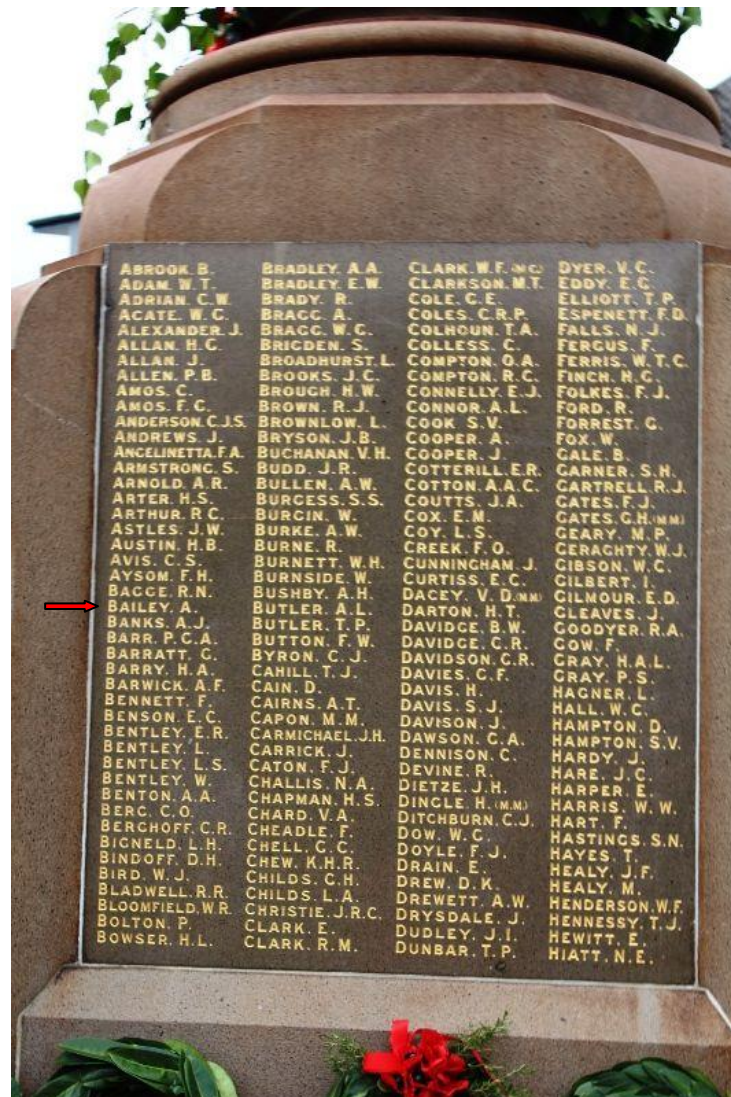 ABROOK. B.
ADAM. W. T.
ADRIAN. C. W.
AGATE. W. G.
ALEXANDER. J.
ALLAN. H. G.
ALLAN. J.
ALLEN. P. B.
AMOS. C.
AMOS. F. G.
ANDERSON. C.J.S.
ANDREWS. J.
ANGELINETTA. F.A.
ARMSTRONG. S.
ARNOLD. A. R.
ARTER. H. S.
ARTHUR. R C.
ASTLES. J. W.
AUSTIN. H. B.
AVIS. C. S.
AYSOM. F. H.
BAGGE. R. N.
BAILEY. A.
BANKS. A. J.
BARR. P. C. A.
BARRATT. G.
BARRY. H. A.
BARWICK. A. F.
BENNETT. F.
BENSON. E. C.
BENTLEY. E. R.
BENTLEY. L.
BENTLEY. L. S.
BENTLEY. W.
BENTON. A. A.
BERG. C. O.
BERGHOFF. C. R.
BIGNELD. L. H.
BINDOFF. D. H.
BIRD. W. J.
BLADWELL. R. R.
BLOOMFIELD. W. R.
BOLTON. P.
BOWSER. H. L.
BRADLEY. A. A.
BRADLEY. E. W.
BRADY. R.
BRAGG. A.
BRAGG. W. G.
BRIGDEN. S.
BROADHURST. L.
BROOKS. J. C.
BROUGH. H. W.
BROWN. R. J.
BROWNLOW. L.
BRYSON. J. B.
BUCHANAN. V. H.
BUDD. J. R.
BULLEN. A. W.
BURGESS. S. S.
BURGIN. W.
BURKE. A. W.
BURNE. R.
BURNETT. W. H.
BURNSIDE. W.
BUSHBY. A. H.
BUTLER. A. L.
BUTLER. T. P.
BUTTON. F. W.
BYRON. C. J.
CAHILL. T. J.
CAIN. D.
CAIRNS. A. T.
CAPON. M. M.
CARMICHAEL. J. H.
CARRICK. J.
CATON. F. J.
CHALLIS. N. A.
CHAPMAN. H. S.
CHARD. V. A.
CHEADLE. F.
CHELL. G. C.
CHEW. K. H. R.
CHILDS. G. H.
CHILDS. L. A.
CHRISTIE. J. R. C.
CLARK. E.
CLARK. R. M.
CLARK. W. F. (M C)
CLARKSON. M. T.
COLE. G. E.
COLES. C. R. P.
COLHOUN. T. A.
COLLESS. C.
COMPTON. O. A.
COMPTON. R. C.
CONNELLY. E. J.
CONNOR. A. L.
COOK. S. V.
COOPER. A.
COOPER. J.
COTTERILL. E. R.
COTTON. A. A. C.
COUTTS. J. A.
COX. E. M.
COY. L. S.
CREEK. F. O.
CUNNINGHAM. J.
CURTISS. E. C.
DACEY. V. D. (M M)
DARTON. H. T.
DAVIDGE. B. W.
DAVIDGE. C. R.
DAVIDSON. C. R.
DAVIES. C. F.
DAVIS. H.
DAVIS. S. J.
DAVISON. J.
DAWSON. G. A.
DENNISON. C.
DEVINE. R.
DIETZE. J. H.
DINGLE. H. (M.M.)
DITCHBURN. C. J.
DOW. W. G.
DOYLE. F. J.
DRAIN. E.
DREW. D. K.
DREWETT. A. W.
DRYSDALE. J.
DUDLEY. J. I.
DUNBAR. T. P.
DYER. V. C.
EDDY. E. G.
ELLIOTT. T. P.
ESPENETT. F. D.
FALLS. N. J.
FERGUS. F.
FERRIS. W. T. C.
FINCH. H. G.
FOLKES. F. J.
FORD. R.
FORREST. G.
FOX. W.
GALE. B.
GARNER. S. H.
GARTRELL. R. J.
GATES. F. J.
GATES. G. H. (M M)
GEARY. M. P.
GERAGHTY. W. J.
GIBSON. W. C.
GILBERT. I.
GILMOUR. E. D.
GLEAVES. J.
GOODYER. R. A.
GOW. F.
GRAY. H. A. L.
GRAY. P. S.
HAGNER. L.
HALL. W. C.
HAMPTON. D.
HAMPTON. S. V.
HARDY. J.
HARE. J. C.
HARPER. E.
HARRIS. W. W.
HART. F.
HASTINGS. S. N.
HAYES. T.
HEALY. J. F.
HEALY. M.
HENDERSON. W. F.
HENNESSY. T. J.
HEWITT. E.
HIATT. N. E.